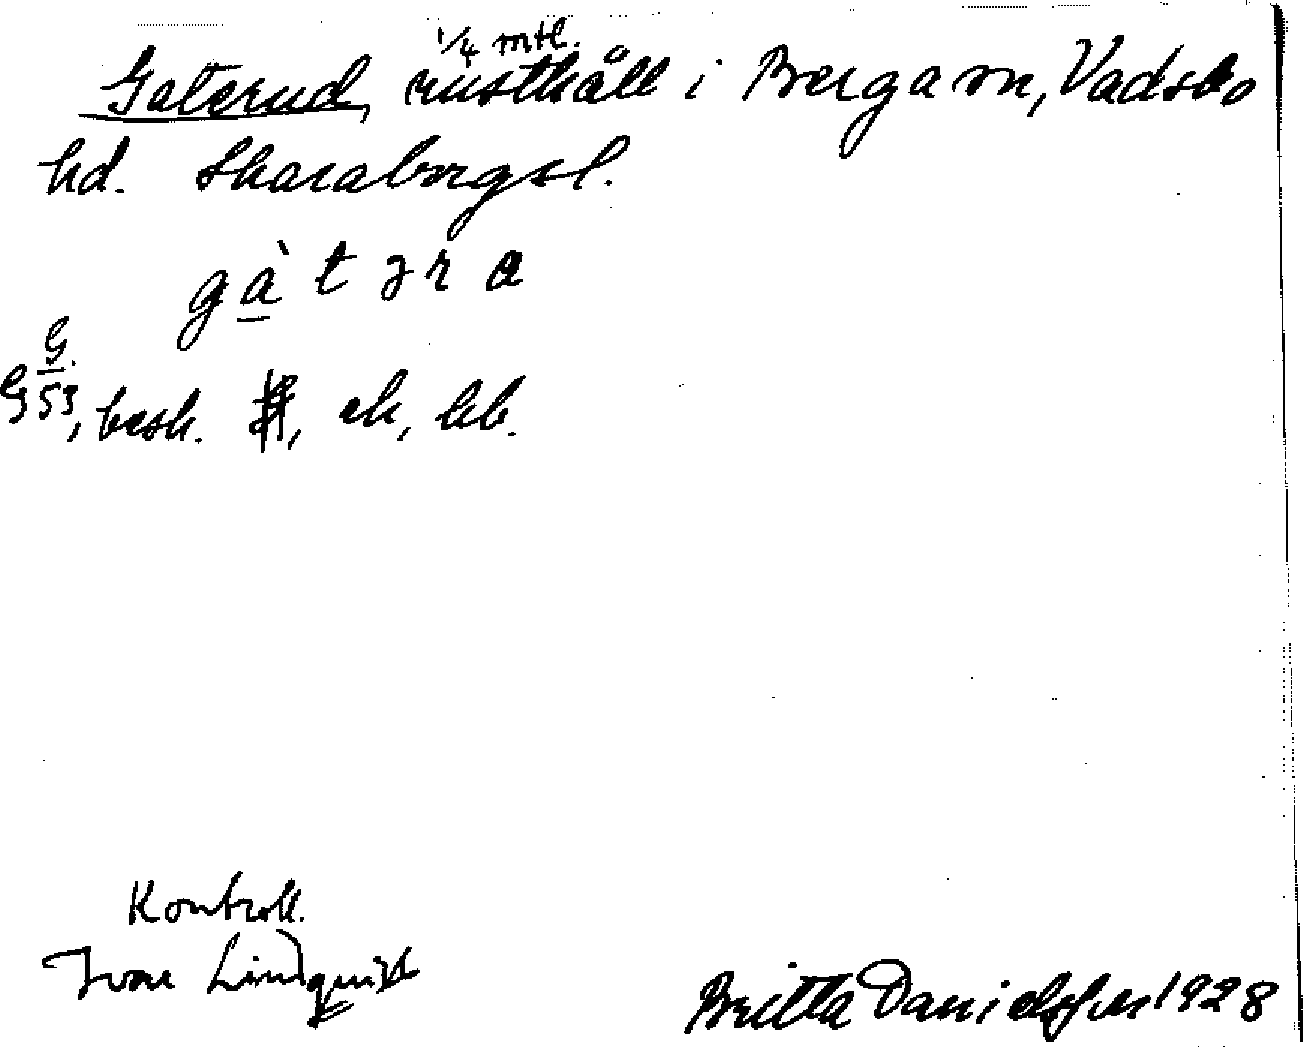 1/4 mtl.
Gaterud, rusthåll i Berga sn, Vadsbo
hd. Skaraborgsl.
gàtɜra
G.
G 53, besk. ek, hb.
Kontroll.
Ivar Lindquist
Britta Danielsson 1928